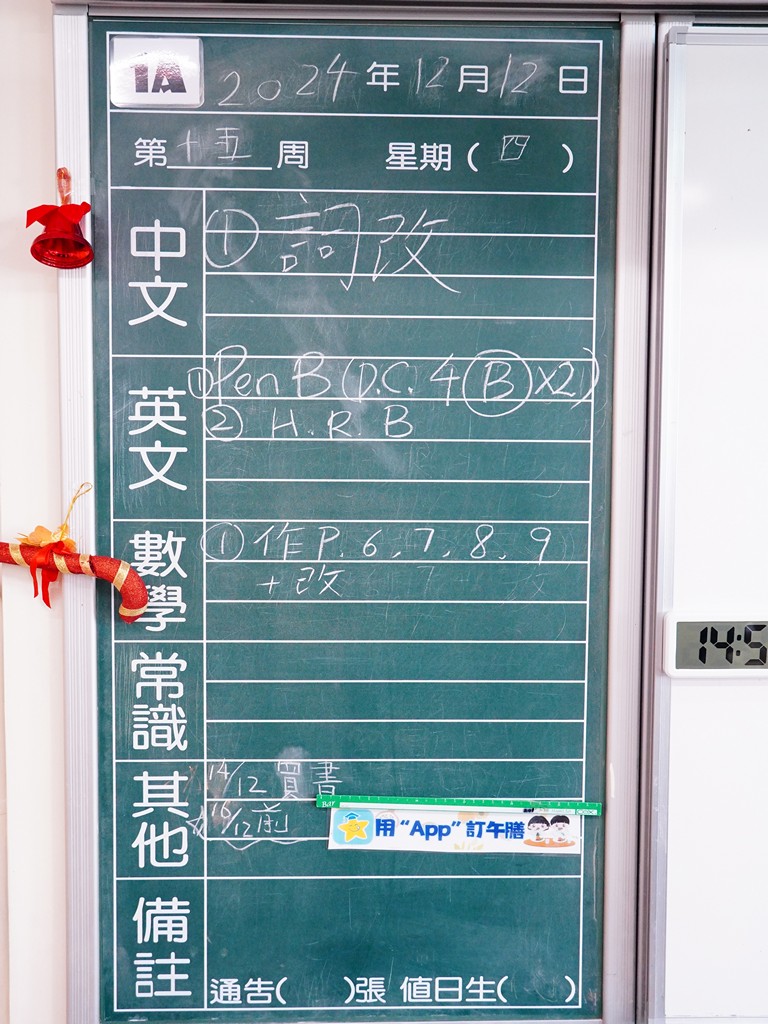 1A 2024年12月12日
第十五周 星期(四)
中文
① 詞改
英文
① Pen B (D.C. 4 Ⓑ x2)
② H.R.B
數學
① 作 P. 6, 7, 8, 9
+ 改
常識
其他
14/12 買書
16/12前
用“App”訂午膳
備註
通告( )張 值日生( )
14:5